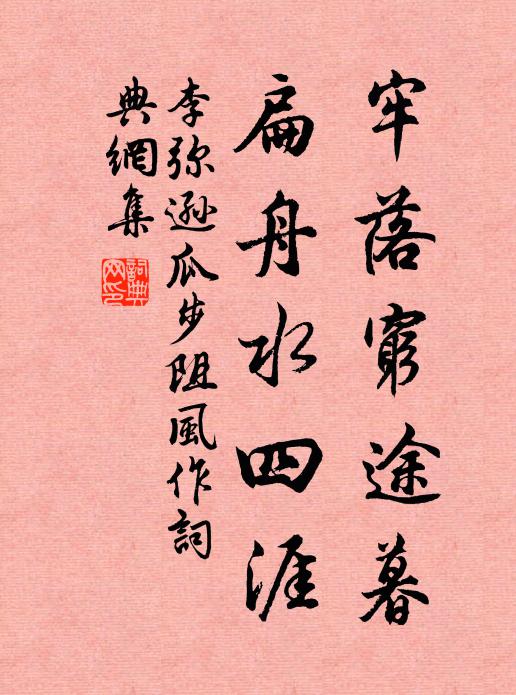 牢落窮途暮
扁舟水四涯
李弥遜瓜步阻風作詞
典網集
詞典網印